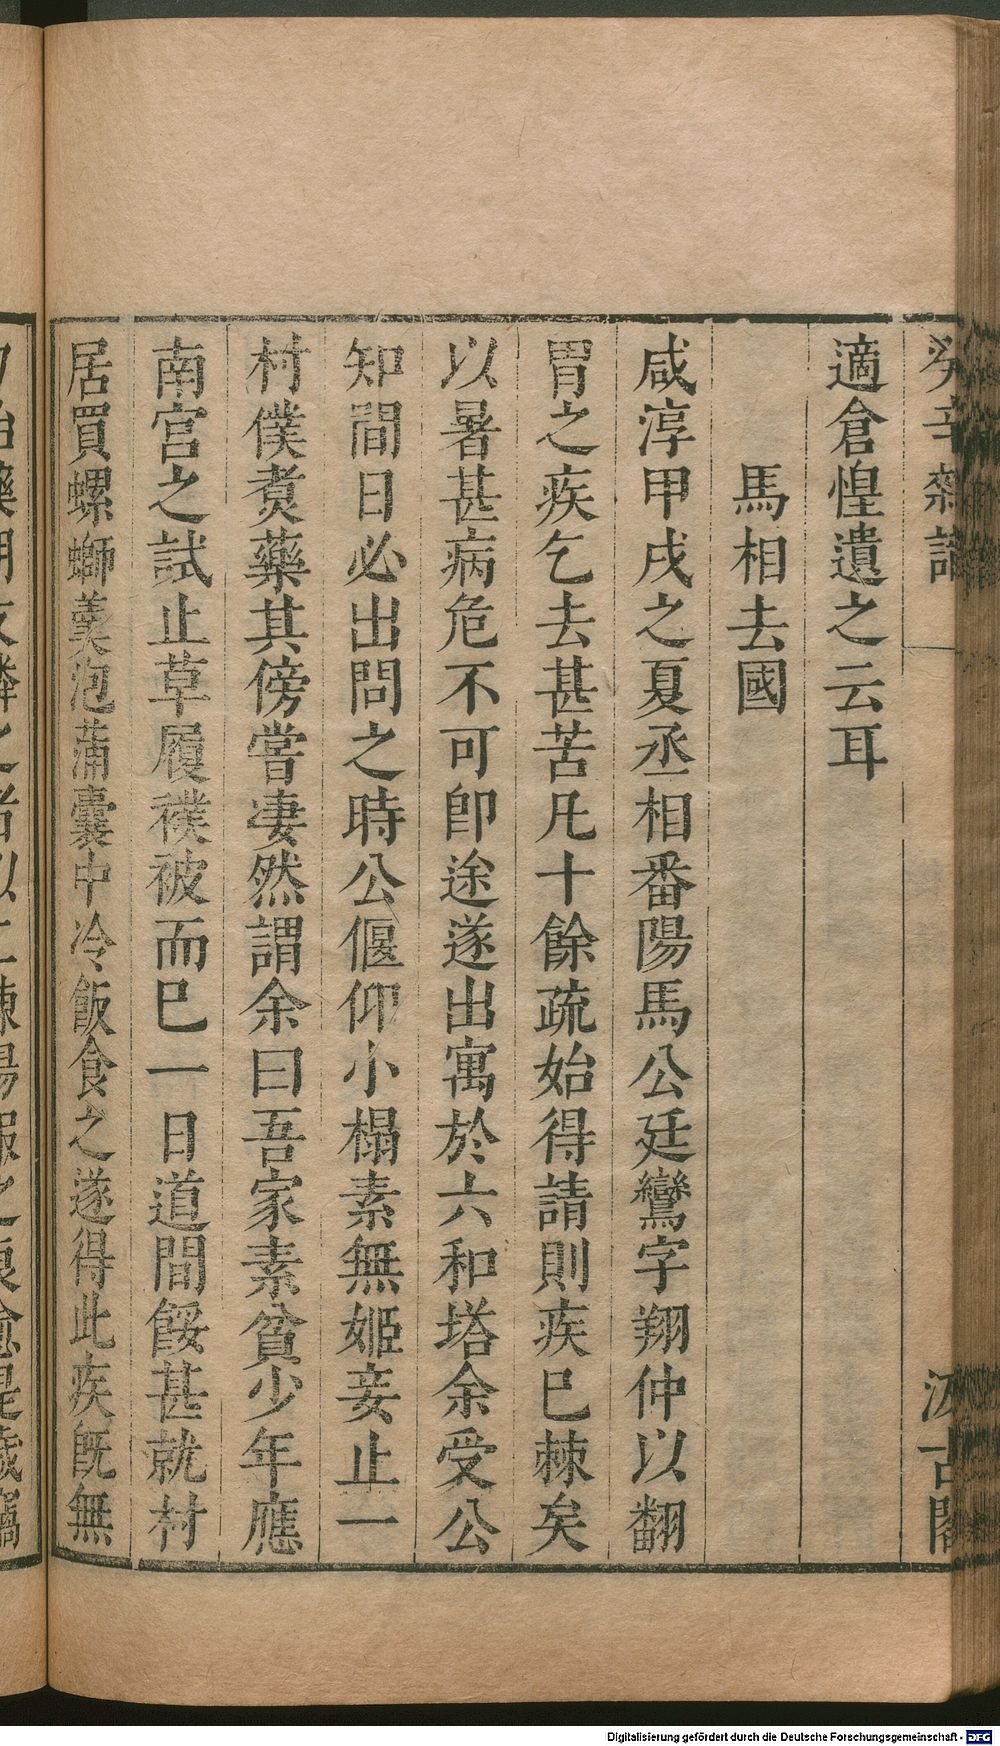 適倉惶遺之云耳
馬相去國
咸淳甲戌之夏丞相番陽馬公廷鸞字翔仲以翻
胃之疾乞去甚苦凡十餘疏始得請則疾巳棘矣
以暑甚病危不可卽途遂出寓於六和塔余受公
知間日必出問之時公偃仰小榻素無姬妾止一
村僕煑藥其傍嘗凄然謂余曰吾家素貧少年應
南宮之試止草履襆被而巳一日道間餒甚就村
居買螺螄羮泡蒲囊中冷飯食之遂得此疾旣無
Digitalisierung gefördert durch die Deutsche Forschungsgemeinschaft - DFG